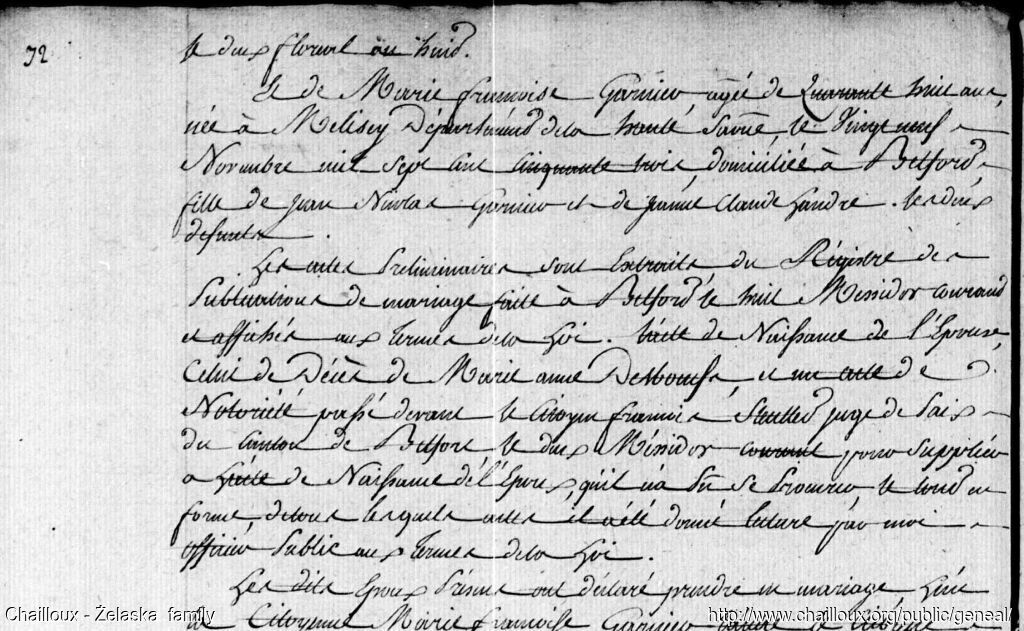 32
le deux floreal an huit.
Et de Marie françoise Garnier agée de Quarante huit ans,
née à Melisey Département de la haute Saone, le Vingt neuf
Novembre mil sept cent cinquante trois, domiciliée à Belfort,
fille de Jean Nicolas Garnier et de Jeanne Claude handre. les deux
defunts.
Les actes Preliminaires sont Extraits du Régistre des
Publications de mariage faite à Belfort le huit Messidor courant
et affichés aux termes de la Loi. l'acte de Naissance de l'Epouse,
Celui de Décès de Marie anne Desboeufs, et un acte de
Notoriété passé devant le Citoyen françois juge de Paix
du Canton de Belfort le deux Méssidor courant pour suppléer
a l'acte de Naissance de l'Epoux, qu'il n'a pu se procurer le tout en
forme, de tous lesquels actes il a été donné lecture par moi
officier Public aux termes de la Loi.
Les dits Epoux Présens ont déclaré prendre en mariage l'un
la Citoyenne Marie françoise Garnier l'autre le Citoyen
Chailloux - Želaska family
http://www.chailloux.org/public/geneal/